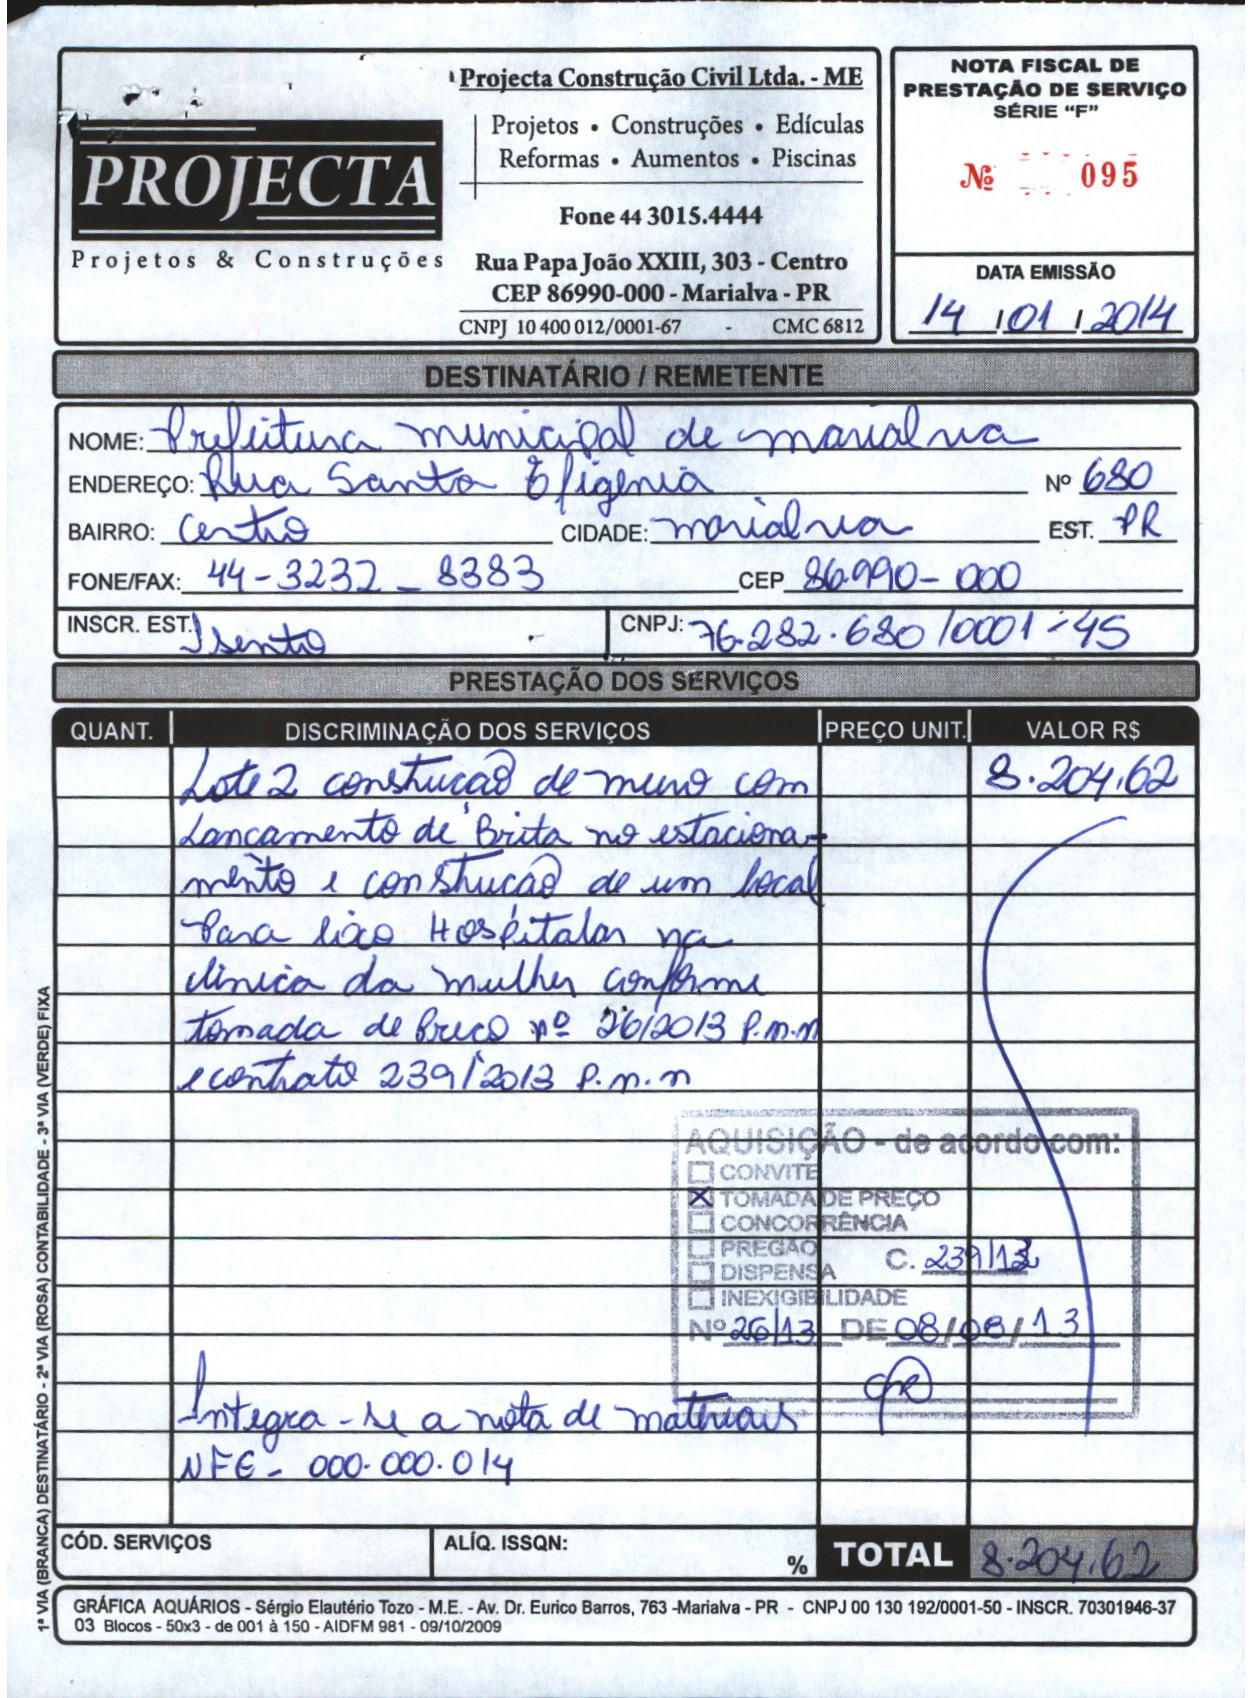 Projecta Construção Civil Ltda. - ME
Projetos • Construções • Edículas
Reformas • Aumentos • Piscinas
Fone 44 3015.4444
Rua Papa João XXIII, 303 - Centro
CEP 86990-000 - Marialva - PR
CNPJ 10 400 012/0001-67 - CMC 6812
PROJECTA
Projetos & Construções
NOTA FISCAL DE
PRESTAÇÃO DE SERVIÇO
SÉRIE “F”
Nº 095
DATA EMISSÃO
14 / 01 / 2014
DESTINATÁRIO / REMETENTE
NOME: Prefeitura municipal de marialva
ENDEREÇO: Rua Santa Efigênia Nº 680
BAIRRO: Centro CIDADE: marialva EST. PR
FONE/FAX: 44-3232-8383 CEP 86.990-000
INSCR. EST. Isento CNPJ: 76.282.680/0001-45
PRESTAÇÃO DOS SERVIÇOS
QUANT. DISCRIMINAÇÃO DOS SERVIÇOS PREÇO UNIT. VALOR R$
Lote 2 construção de muro com 8.204,62
Lançamento de Brita no estaciona-
mento e construção de um local
Para lixo Hospitalar na
clinica da mulher conforme
tomada de Preço nº 26/2013 P.m.m
e contrato 239/2013 P.m.m
AQUISIÇÃO - de acordo com:
CONVITE
X TOMADA DE PREÇO
CONCORRÊNCIA
PREGÃO
DISPENSA C. 239/13
INEXIGIBILIDADE
Nº 26/13 DE 08/08/13
Integra-se a nota de materiais
NFE- 000.000.014
CÓD. SERVIÇOS ALÍQ. ISSQN: % TOTAL 8.204,62
GRÁFICA AQUÁRIOS - Sérgio Elautério Tozo - M.E. - Av. Dr. Eurico Barros, 763 -Marialva - PR - CNPJ 00 130 192/0001-50 - INSCR. 70301946-37
03 Blocos - 50x3 - de 001 à 150 - AIDFM 981 - 09/10/2009
1ª VIA (BRANCA) DESTINATÁRIO - 2ª VIA (ROSA) CONTABILIDADE - 3ª VIA (VERDE) FIXA